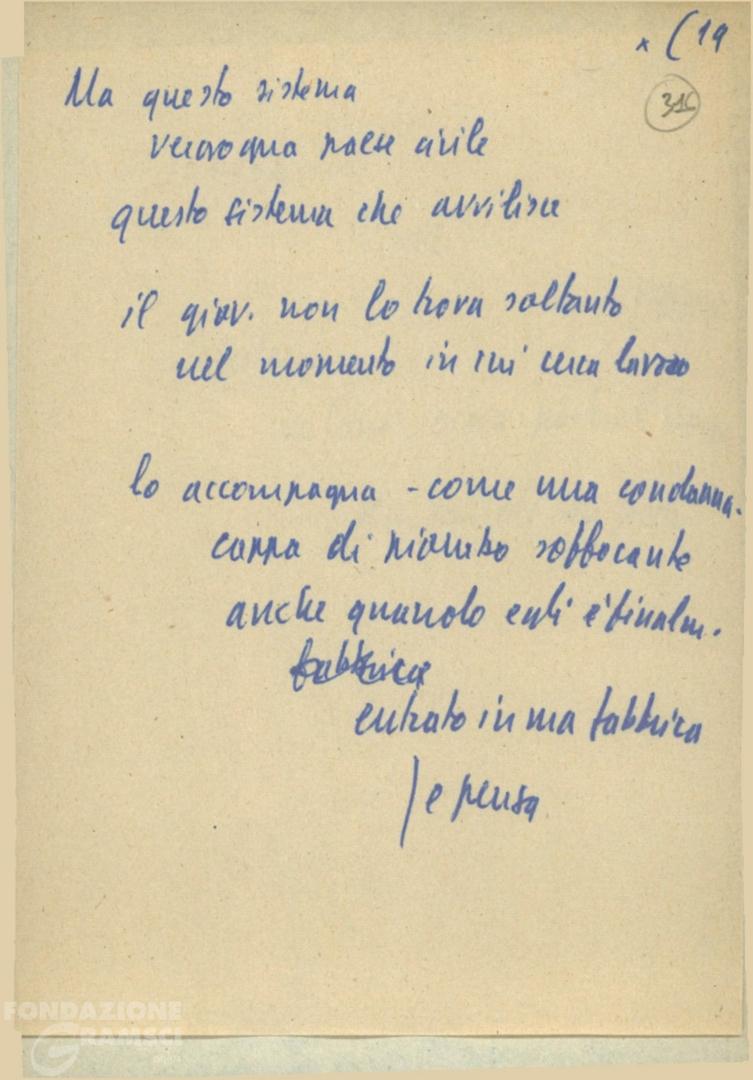 x (19
316
Ma questo sistema
vergogna paese civile
questo sistema che avvilisce
il giov. non lo trova soltanto
nel momento in cui cerca lavoro
lo accompagna - come una condanna -
cappa di piombo soffocante
anche quando egli è finalm.
fabbrica
entrato in una fabbrica
) e pensa
FONDAZIONE
GRAMSCI